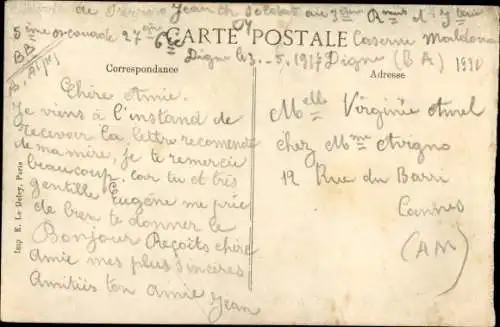 de Jean Ch Soldat au 3ème
5ème escouade 27ème
Caserne
BB
CARTE POSTALE
Digne le 3 - 5 . 1917 Digne (B A)
Correspondance
Adresse
Chère Amie.
Je viens à l'instand de
recevoir la lettre recomendé
de ma mire, je te remercie
beaucoup. car tu et très
gentille Eugène me prie
de bien te donner le
Bonjour Reçoits chère
Amie mes plus sincères
Amitiés ton amie Jean
Melle Virginie
chez Mme Avigno
12 Rue du Barri
Cannes
(AM)
Imp E. Le Deley, Paris